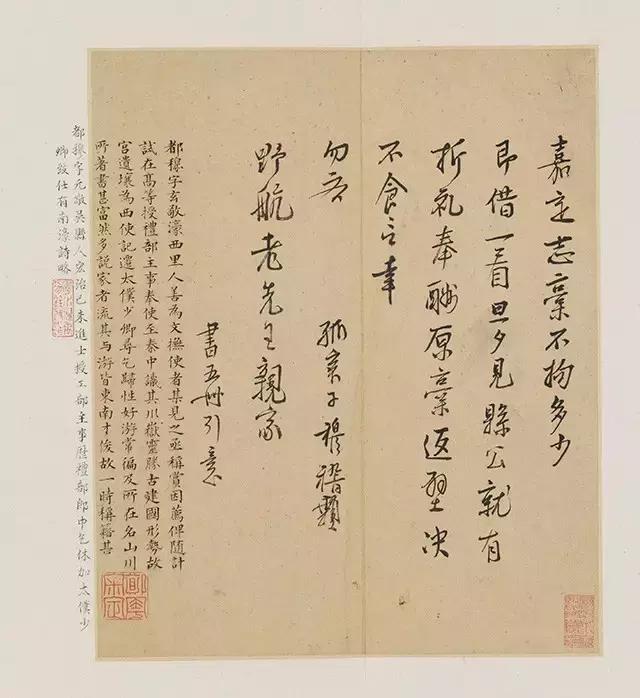 嘉定志稾不拘多少
即借一看旦夕見縣公就有
折礼奉酬原稾返璧决
不食言幸
勿吝　孤哀子穆稽顙
野航老先生親家
書五冊引意
都穆字玄敬濠西里人善為文撫使者某見之亟稱賞因薦俾随計
試在髙等授禮部主事奉使至秦中譏其川嶽靈勝古建國形勢故
宮遺壤為西使記遷太僕少卿尋乞歸性好游常徧及所在名山川
所著書甚富然多說家者流其与游皆東南才俊故一時稱籍甚
都穆字元敬吳縣人宏治己未進士授工部主事歷禮部郎中乞休加太僕少
卿致仕有南濠詩略